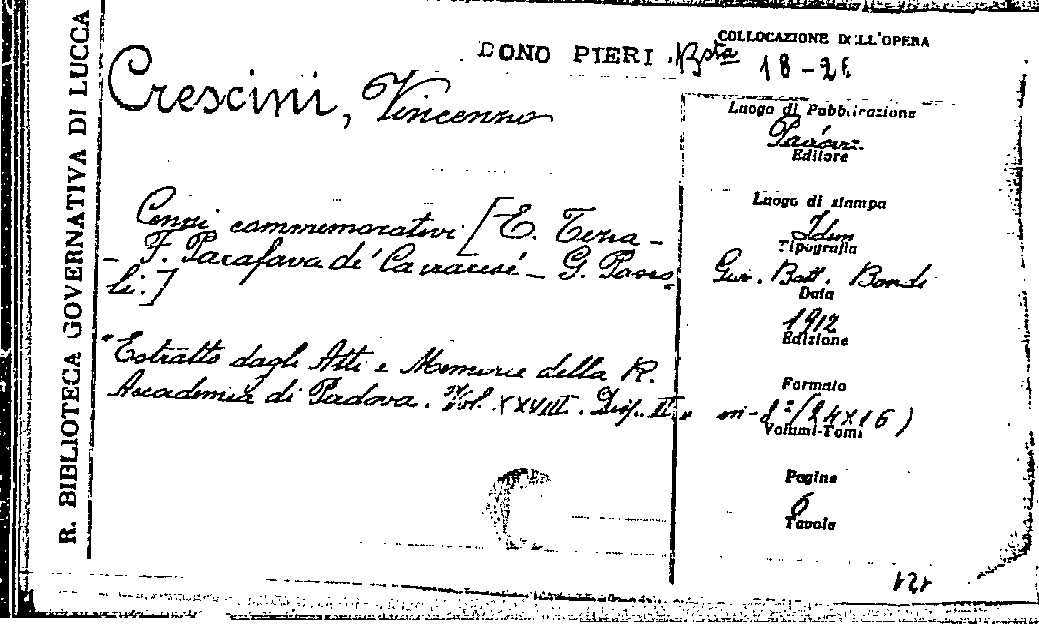 R. BIBLIOTECA GOVERNATIVA DI LUCCA
DONO PIERI
COLLOCAZIONE DELL'OPERA
Bsta 18-26
Crescini, Vincenzo
Cenni commemorativi [E. Teza -
- F. Papafava de' Carraresi - G.
li.]
"Estratto dagli Atti e Memorie della R.
Accademia di Padova. Vol. XXVIII. Disp. II"
Luogo di Pubblicazione
Padova
Editore
Luogo di stampa
Idem
Tipografia
Giov. Batt. Randi
Data
1912
Edizione
Formato
in-8° (24x16)
Volumi-Tomi
Pagine
6
Tavole
121